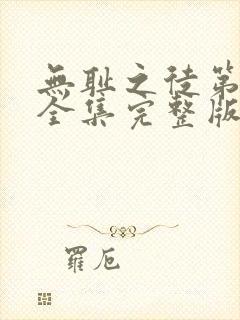 無耻之徒第
全集完整版
羅卮